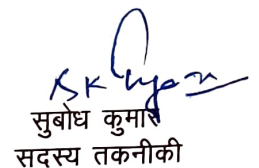 सुबोध कुमार
सदस्य तकनीकी